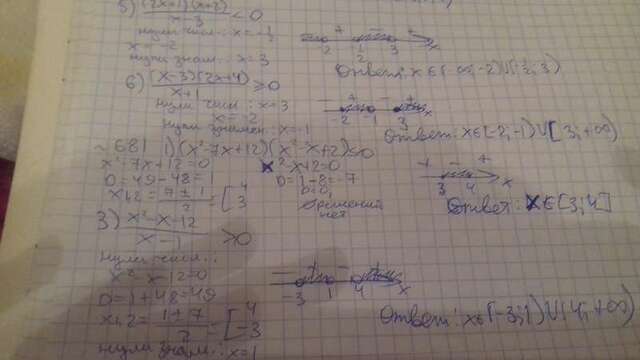 5) (2x+1)(x+2) / x-3 < 0
нули числ.: x = -1/2
x = -2
нули знам.: x = 3
+ -
-2 -1/2 3 x
Ответ: x∈(-∞; -2)∪(-1/2; 3)
6) (x-3)(2x+4) / x+1 ≥ 0
нули числ: x = 3
x = -2
нули знамен.: x = -1
+ - +
-2 -1 3 x
Ответ: x∈[-2; -1)∪[3; +∞)
~681 1) (x²-7x+12)(x²-x+2) ≤ 0
x²-7x+12=0 x²-x+2=0
D=49-48=1 D=1-8=-7
x1,2 = 7±1 / 2 = [4 3 D<0, решений нет
+ - +
3 4 x
Ответ: x∈[3; 4]
3) x²-x-12 / x-1 > 0
нули числ.:
x²-x-12=0
D=1+48=49
x1,2 = 1±7 / 2 = [4 -3
нули знам.: x=1
- + - +
-3 1 4 x
Ответ: x∈(-3; 1)∪(4; +∞)